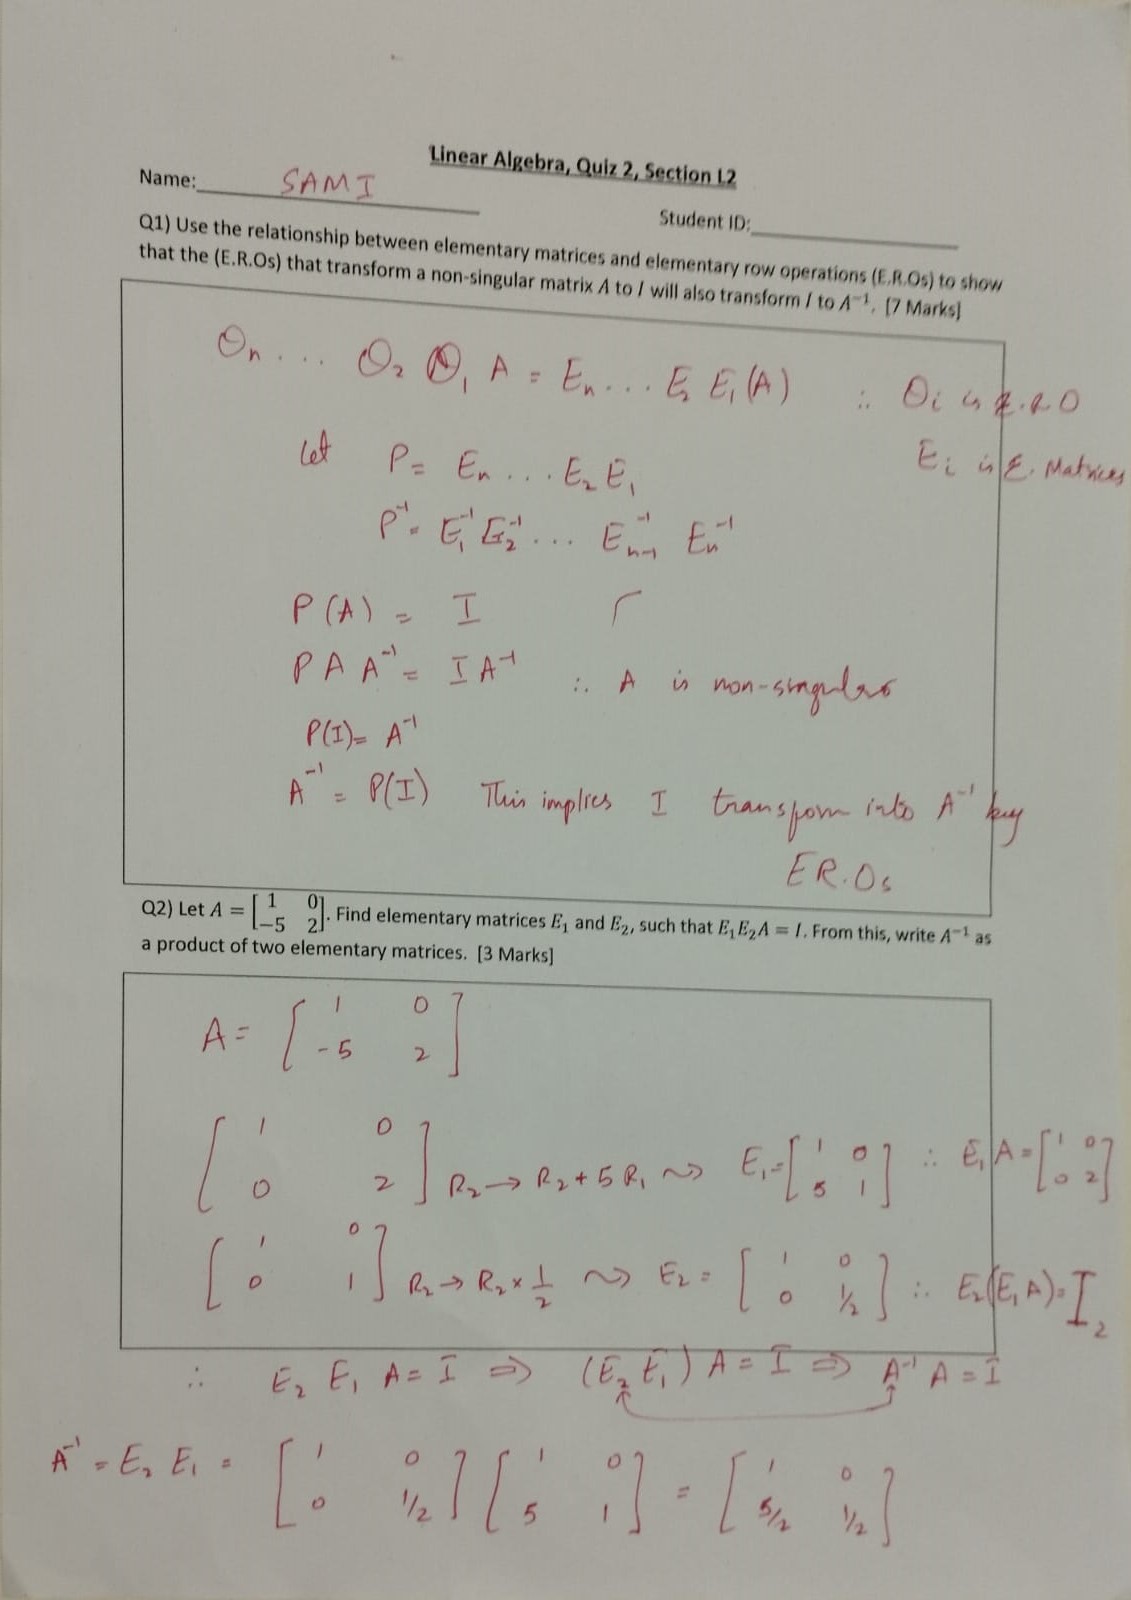 Linear Algebra, Quiz 2, Section L2
Name: SAMI
Student ID:
Q1) Use the relationship between elementary matrices and elementary row operations (E.R.Os) to show
that the (E.R.Os) that transform a non-singular matrix A to I will also transform I to A⁻¹. [7 Marks]
Θn ... Θ₂ Θ₁ A = En ... E₂ E₁(A) ∴ Θi is E.R.O
Ei is E. Matrices
Let P = En ... E₂ E₁
P⁻¹ = E₁⁻¹ E₂⁻¹ ... En-1⁻¹ En⁻¹
P(A) = I
P A A⁻¹ = I A⁻¹ ∴ A is non-singular
P(I) = A⁻¹
A⁻¹ = P(I) This implies I transform into A⁻¹ by
E R.Os
Q2) Let A = [1 0; -5 2]. Find elementary matrices E₁ and E₂, such that E₁E₂A = I. From this, write A⁻¹ as
a product of two elementary matrices. [3 Marks]
A = [1 0; -5 2]
[1 0; 0 2] R₂ → R₂ + 5 R₁ ⇝ E₁ = [1 0; 5 1] ∴ E₁A = [1 0; 0 2]
[1 0; 0 1] R₂ → R₂ × 1/2 ⇝ E₂ = [1 0; 0 1/2] ∴ E₂(E₁A) = I₂
∴ E₂ E₁ A = I ⇒ (E₂ E₁) A = I ⇒ A⁻¹ A = I
A⁻¹ = E₂ E₁ = [1 0; 0 1/2] [1 0; 5 1] = [1 0; 5/2 1/2]